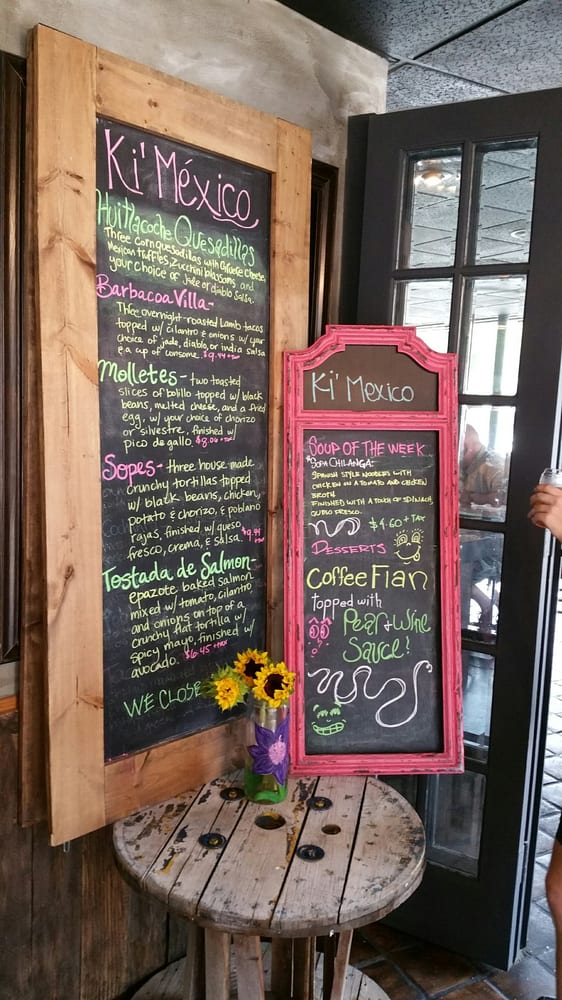 Ki' México
Huitlacoche Quesadillas
Three corn quesadillas with Oaxaca Cheese,
Mexican truffles, Zucchini blossoms, and
your choice of jade or diablo Salsa.
Barbacoa Villa-
Three overnight-roasted Lamb tacos
topped w/ cilantro & onions w/ your
choice of jade, diablo, or india salsa
& a cup of consome. $9.44+tax
Molletes - two toasted
slices of bolillo topped w/ black
beans, melted cheese, and a fried
egg, w/ your choice of chorizo
or silvestre, finished w/
pico de gallo. $8.06+tax
Sopes- three house made
crunchy tortillas topped
w/ black beans, chicken,
potato & chorizo, & poblano
rajas, finished w/ queso
fresco, crema, & salsa. $9.44
+tax
Tostada de Salmon-
epazote baked salmon
mixed w/ tomato, cilantro,
and onions on top of a
crunchy flat tortilla w/
spicy mayo, finished w/
avocado. $6.45+tax
WE CLOSE
Ki' Mexico
SOUP OF THE WEEK
*SOPA CHILANGA-
SPANISH STYLE NOODLES WITH
CHICKEN ON A TOMATO AND CHICKEN
BROTH
FINISHED WITH A TOUCH OF SPINACH,
QUESO FRESCO.
$4.60+TAX
DESSERTS
Coffee Flan
topped with
Pear & Wine
Sauce!